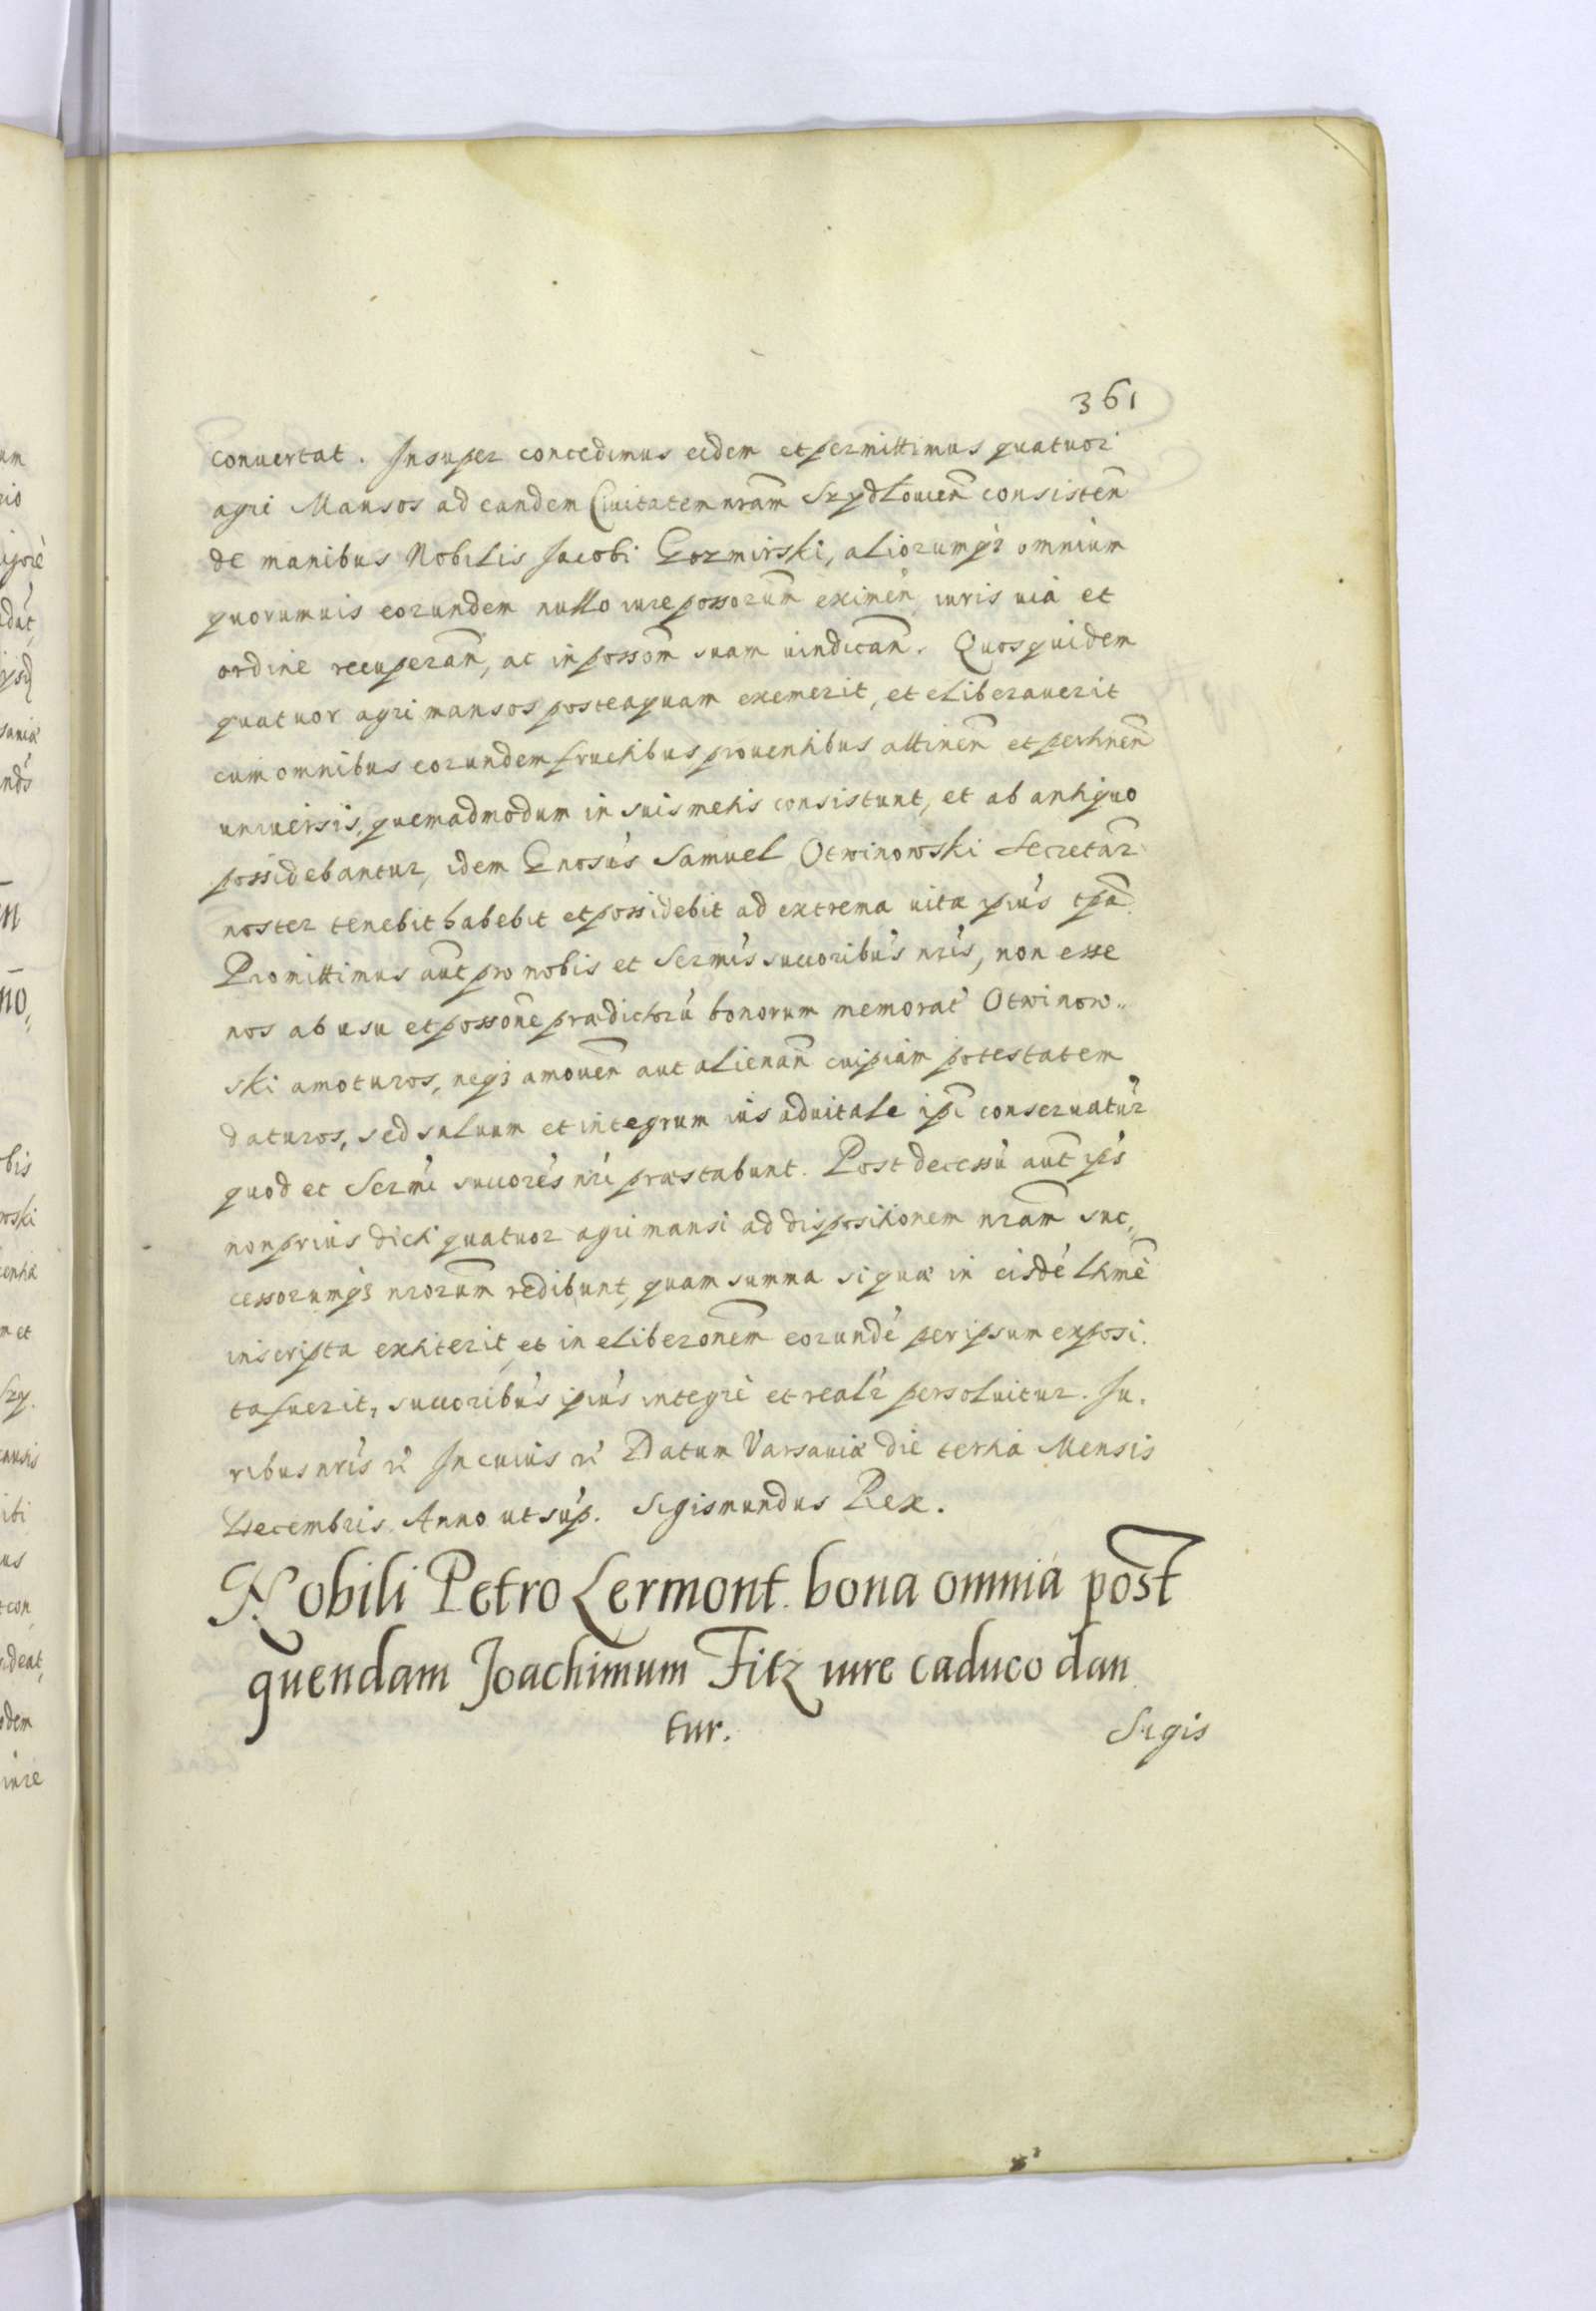 361
conuertat. Insuper concedimus eidem et permittimus quatuor
agri Mansos ad eandem Ciuitatem nram̃ Szydlouien̄ consisten̄
de manibus Nobilis Jacobi Gozmirski, aliorumq3 omnium
quorumuis eorundem nullo iure possorum̃ eximen̄ iuris uia et
ordine recuperan̄, ac in possom̃ suam uindican̄. Quos quidem
quatuor agri mansos posteaquam exemerit, et eliberauerit
cum omnibus eorundem fructibus prouentibus attinen̄ et pertinen̄
uniuersis, quemadmodum in suis metis consistunt, et ab antiquo
possidebantur, idem Gnosus Samuel Otwinowski Secretar̃
noster tenebit habebit et possidebit ad extrema uitæ ipius tpa.
Promittimus aut̃ pro nobis et Sermis succoribus nris, non esse
nos ab usu et possone prædictoru bonorum memorat Otwinow„
ski amoturos, neq3 amouen̄ aut alienan̄ cuipiam potestatem
daturos, sed saluum et integrum ius aduitale ipi conseruatur
quod et Sermi succores nri præstabunt. Post decessu aut̃ ips
non prius dicti quatuor agri mansi ad dispositionem nram̃ suc„
cessorumq3 nrorum̃ redibunt, quam summa si quæ in eisde ltime
inscripta extiterit, et in eliberonem̃ eorunde per ipsum exposi.
ta fuerit, succoribus ipius integre et realr persoluitur. Ju.
ribus nris rc̃ In cuius rc̃ Datum Varsauiæ die tertia Mensis
Decembris Anno ut sup. Sigismundus Rex.
Nobili Petro Lermont. bona omnia post
quendam Joachimum Fitz iure caduco dan
tur.
Sigis